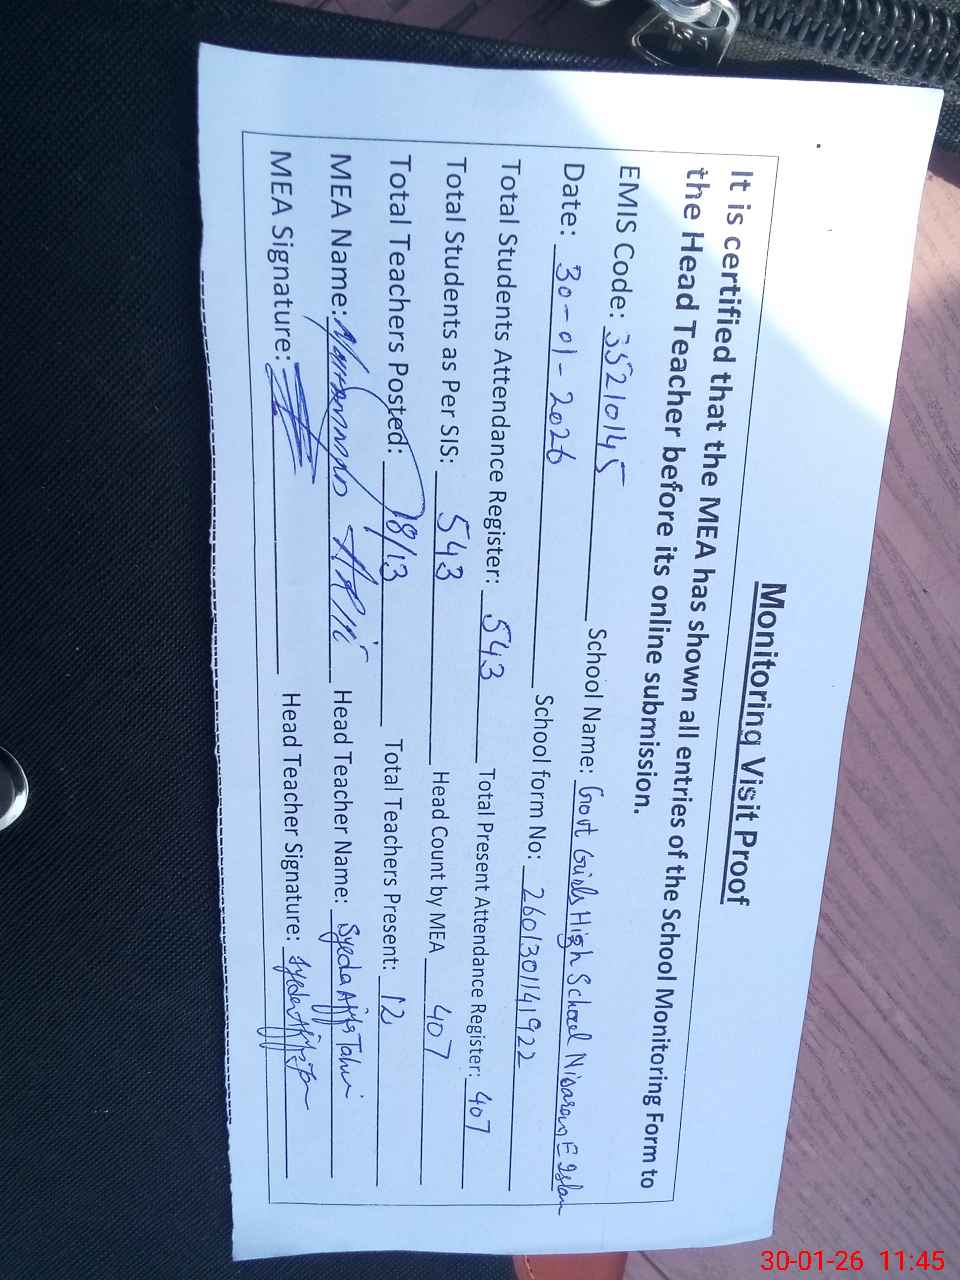 Monitoring Visit Proof
It is certified that the MEA has shown all entries of the School Monitoring Form to
the Head Teacher before its online submission.
EMIS Code: 35210145 School Name: Govt Girls High School Nisaran E Islam
Date: 30-01-2026 School form No: 2601301141922
Total Students Attendance Register: 543 Total Present Attendance Register: 407
Total Students as Per SIS: 543 Head Count by MEA 407
Total Teachers Posted: 18/13 Total Teachers Present: 12
MEA Name: Head Teacher Name: Syeda
MEA Signature: Head Teacher Signature:
30-01-26 11:45